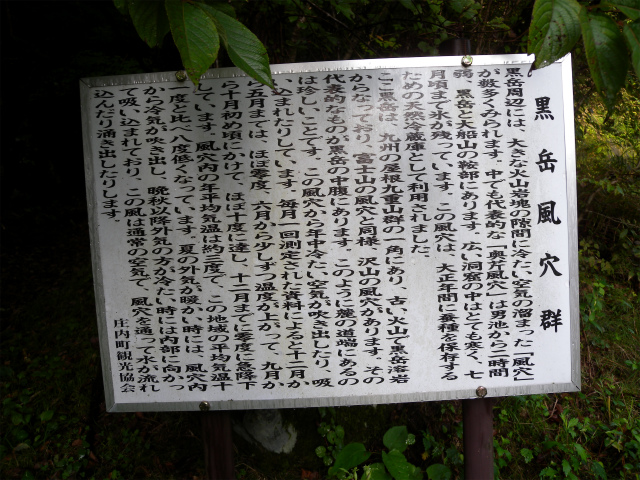 黒岳風穴群
黒岳周辺には、大きな火山岩塊の隙間に冷たい空気の溜まった「風穴」
が数多くみられます。中でも代表的な「奥芹風穴」は男池から二時間
弱、黒岳と大船山の鞍部にあります。広い洞窟の中はとても寒く、七
月頃まで氷が残っています。この風穴は、大正年間に蚕種を保存する
ための天然冷蔵庫として利用されました。
ここ黒岳は、九州の屋根九重山群の一角にあり、古い火山で黒岳溶岩
からなっており、富士山の風穴と同様、沢山の風穴があります。その
代表的なものが黒岳の中腹にあります。このように麓の道端にあるの
は珍しいことです。この風穴から年中冷たい空気が吹き出したり、吸
い込まれたりしています。毎月一回測定された資料によると十二月か
ら五月までは、ほぼ零度、六月から少しずつ温度が上がって、九月か
ら十月初の頃にかけて、ほぼ十度に達し、十二月までに零度に急降下
しています。風穴内の年平均気温は約三度で、この地域の平均気温十
一度と比べ八度低くなっています。夏の外気が暖かい時には、風穴内
から冷気が吹き出し、晩秋以降外気の方が冷たい時には内部に向かっ
て吸い込まれており、この風は通常の空気で、風穴を通って水が流れ
込んだり涌き出したりします。
庄内町観光協会